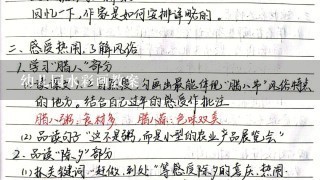 回忆一下，作家是如何安排详略的。
二、感受热闹，了解风俗
1. 学习“腊八”部分
勾画出最能体现“腊八节”风俗特点
的地方。结合自己过年的感受作批注
腊八粥：食材多 腊八蒜：色味双美
(2) 品读句子“这不是粥，而是小型的农业产品展览会”
2. 品读“除夕”部分
(1) 抓关键词“赶做、到处”等感悟除夕的喜庆、热闹
幼儿园水彩画教案